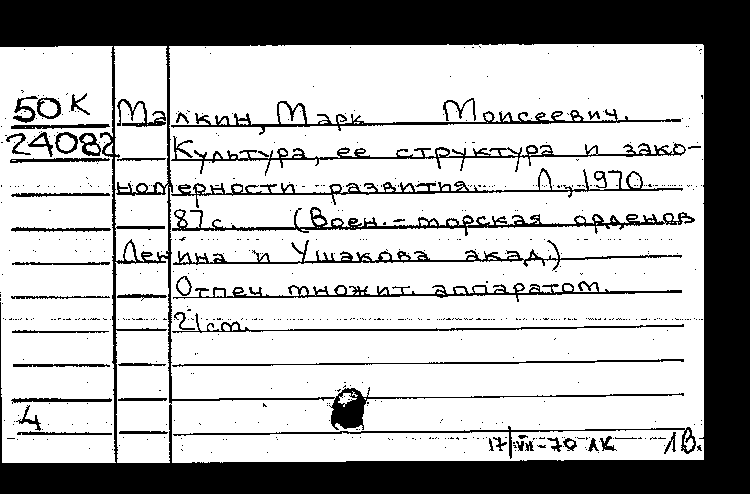 50К Малкин, Марк Моисеевич.
24082 Культура, ее структура и зако-
номерности развития. Л., 1970.
87с. (Воен.-морская орденов
Ленина и Ушакова акад.)
Отпеч. множит. аппаратом.
21см.
4
17/VII-70 ЛК 1В.